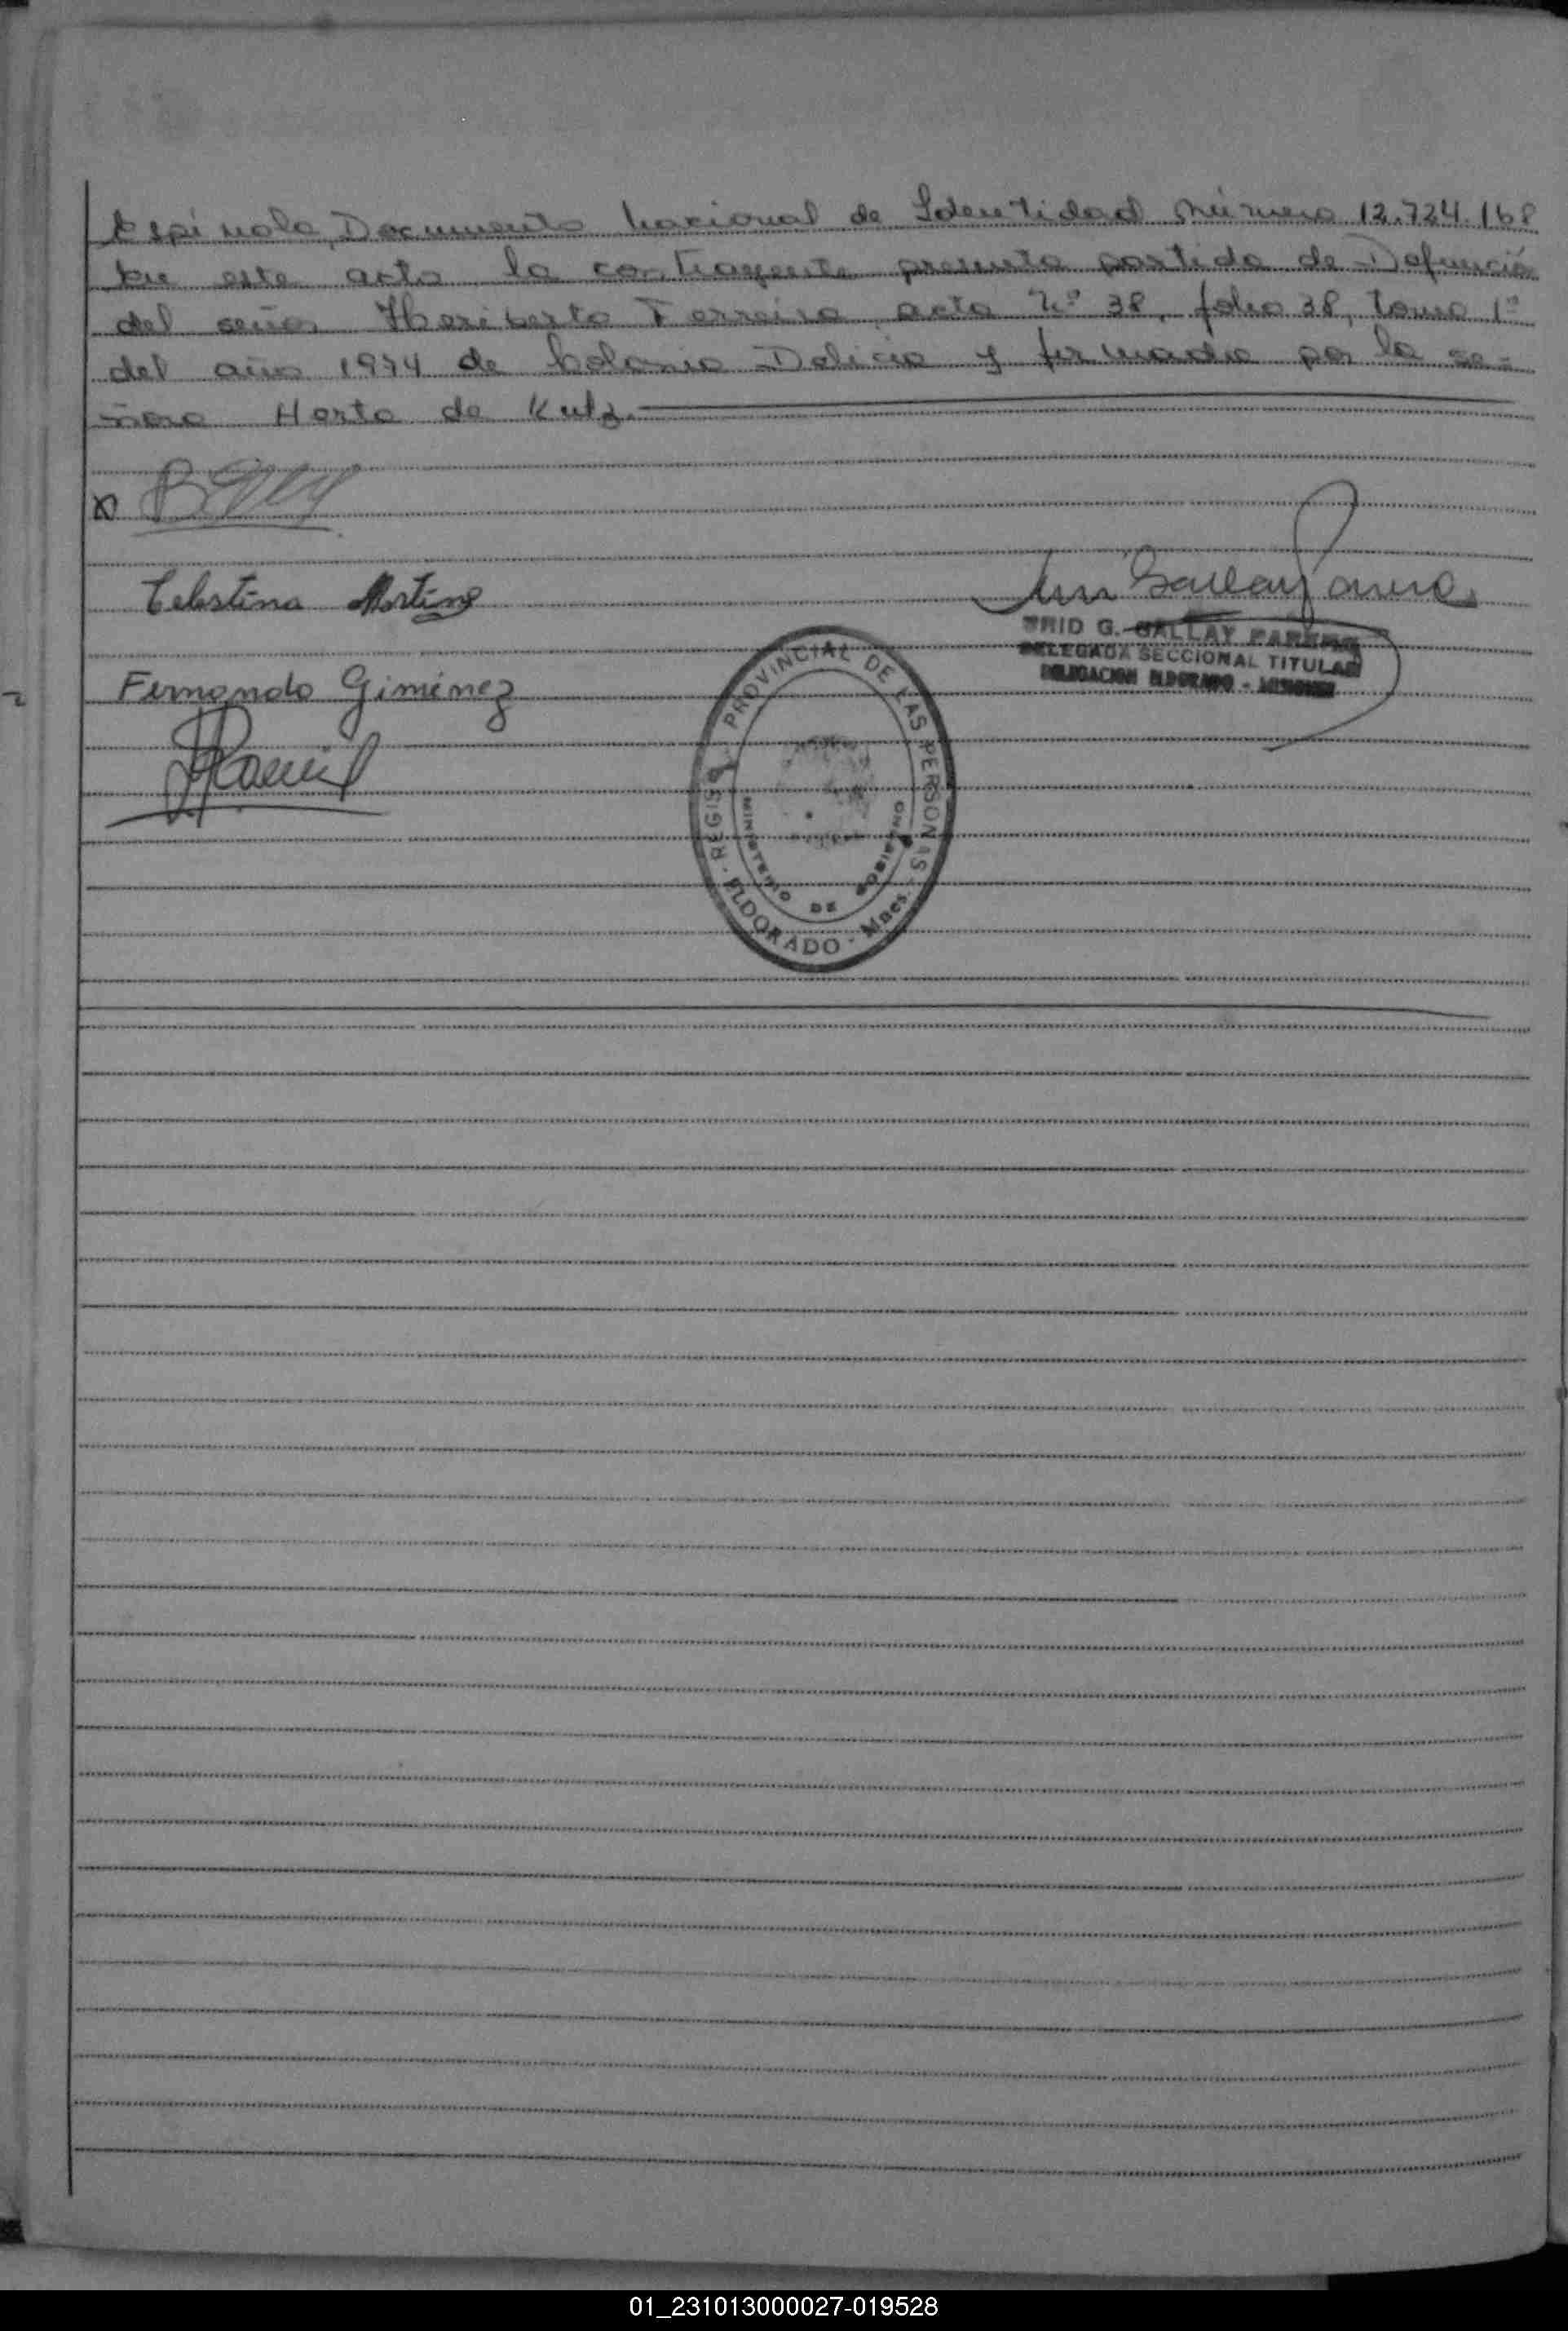 Espínola, Documento Nacional de Identidad Número 12.724.168
En este acto la contrayente presenta partida de Defunción
del señor Heriberto Ferreira, acta Nº 38, folio 38, tomo 1º
del año 1974 de Colonia Delicia y firmada por la se=
ñora Herta de Kulz.
Celestina Martinez
Fernando Giménez
GALLAY
DELEGADA SECCIONAL TITULAR
DELEGACION ELDORADO - MISIONES
PROVINCIAL DE LAS PERSONAS
MINISTERIO DE GOBIERNO
ELDORADO - Mnes.
01_231013000027-019528